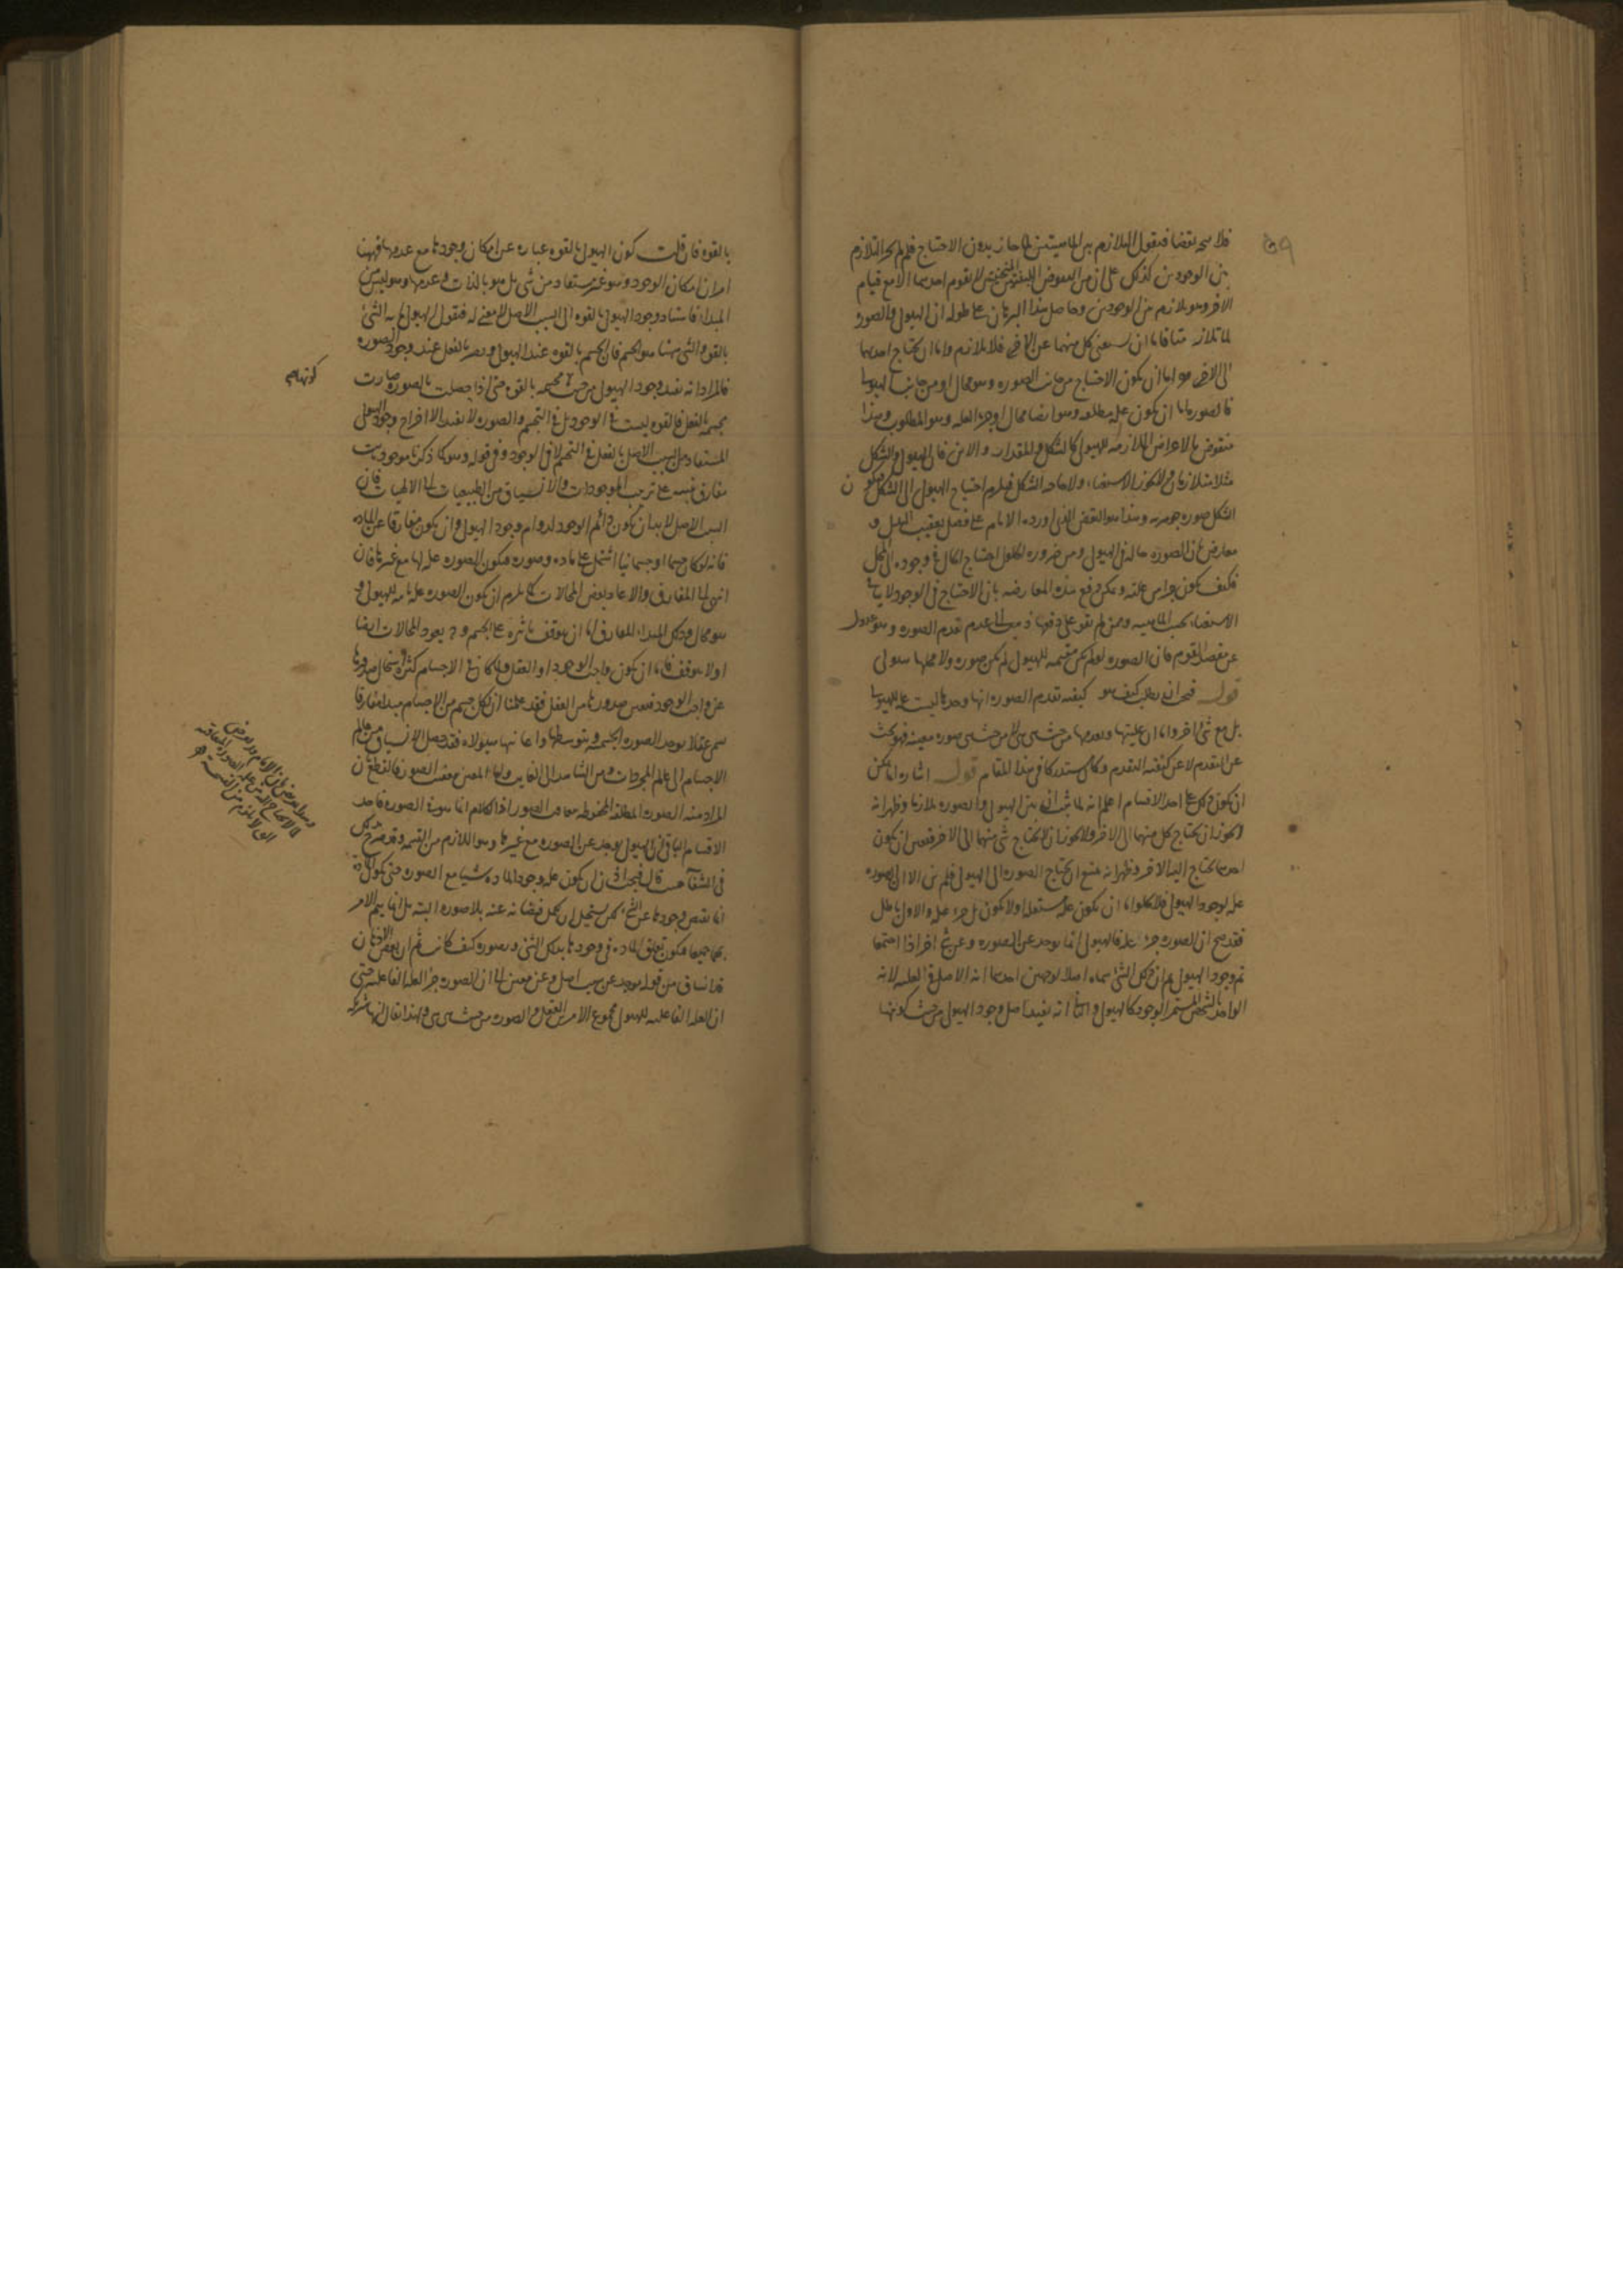 ٥٩
فلا يتم نقضا فنقول التلازم بين الماهيتين لما جاز بدون الاحتياج فلم لم يجز التلازم
بين الوجودين كذلك على ان من المنقوض اللبنتين المنحنيتين لا يقوم احديهما الا مع قيام
الاخر وهو تلازم بين الوجودين وحاصل هذا البرهان على طوله ان الهيولى والصورة
لما تلازمتا فاما ان يستغنى كل منهما عن الاخر فلا تلازم واما ان يحتاج احديهما
الى الاخر فاما ان يكون الاحتياج من جانب الصورة وهو محال او من جانب الهيولى
فالصورة اما ان تكون علة مطلقة وهو ايضا محال او جزء العلة وهو المطلوب وهذا
منقوض بالاعراض اللازمة للهيولى كالشكل والمقدار والاين فان الهيولى والشكل
مثلا متلازمان ولا يجوز الاستغناء ولا حاجة الشكل فيلزم احتياج الهيولى الى الشكل فيكون
الشكل صورة جوهرية وهذا هو النقض الذي اورده الامام على فصل تعقيب البدل و
معارض بان الصورة حالة في الهيولى ومن ضرورة الحلول احتياج الحال في وجوده الى المحل
فكيف يكون جزءا من علته ويمكن دفع هذه المعارضة بان الاحتياج في الوجود لا ينافي
الاستغناء بحسب الماهية وممن لم يقو على دفعها ذهب الى عدم تقدم الصورة وهو عدول
عن مقصد القوم فان الصورة لو لم تكن مقيمة للهيولى لم تكن صورة ولا محلها هيولى
قوله فيجب ان يطلب كيف هو كيفية تقدم الصورة انها وحدها ليست علة للهيولى
بل مع شئ اخر واما ان عليتها وتقدمها من حيث هي هي لا من حيث هي صورة معينة فهو بحث
عن التقدم لا عن كيفية التقدم وكان مستدركا في هذا المقام قوله اشارة انما يمكن
ان يكون ذلك على احد الاقسام اعلم انه لما ثبت ان بين الهيولى والصورة تلازما وظهر انه
لا يجوز ان يحتاج كل منهما الى الاخر ولا يجوز ان لا يحتاج شئ منهما الى الاخر فتعين ان يكون
احديهما يحتاج اليه الاخر وظهر انه يمتنع ان تحتاج الصورة الى الهيولى فلم يبق الا ان الصورة
علة لوجود الهيولى فلا يخلو اما ان تكون علة مستقلة او لا تكون بل جزء علة والاول باطل
فقد صح ان الصورة جزء علة فالهيولى انما توجد عن الصورة وعن شئ اخر اذا اجتمعا
تم وجود الهيولى ثم ان ذلك الشئ سماه اصلا لوجهين احدهما انه الاصل في العلية لانه
الواحد بالشخص المستمر الوجود كالهيولى والثاني انه يفيد اصل وجود الهيولى من حيث كونها
بالقوة فان قلت كون الهيولى بالقوة عبارة عن امكان وجودها مع عدمها فههنا
امران امكان الوجود وهو غير مستفاد من شئ بل هو بالذات وعدمها وهو ليس من
المبدا فاستناد وجود الهيولى بالقوة الى السبب الاصل لا معنى له فنقول الهيولى ما به الشئ
بالقوة والشئ ههنا هو الجسم فان الجسم بالقوة عند الهيولى ويصير بالفعل عند وجود الصورة
فالمراد انه يفيد وجود الهيولى من حيث مجسمة بالقوة حتى اذا حصلت بالصورة صارت
مجسمة بالفعل فالقوة ليست في الوجود بل في التجسم والصورة لا تفيد الا اخراج وجود الهيولى
المستفاد من السبب الاصل بالفعل في التجسم لا في الوجود وفي قوله وهو كما ذكرنا موجود
مفارق تنبيه على ترتيب الموجودات والانسياق من الطبيعيات الى الالهيات فان
السبب الاصل لا بد ان يكون دائم الوجود لدوام وجود الهيولى وان يكون مفارقا عن المادة
فانه لو كان جسما او جسمانيا اشتمل على مادة وصورة فتكون الصورة علة لها مع غيرها فان
انتهى الى المفارق والا عاد بعض المحالات كما يلزم ان تكون الصورة علة تامة للهيولى و
هو محال وذلك المبدا المفارق اما ان يتوقف تاثيره على الجسم وح يعود المحالات ايضا
او لا يتوقف فاما ان يكون واجب الوجود او العقل ولما كان في الاجسام كثرة واستحال صدورها
عن واجب الوجود فتعين صدورها من العقل فقد علمنا ان لكل جسم من الاجسام مبدا مفارقا
سمى عقلا يوجد الصورة الجسمية وبتوسطها واعانتها هيولاه فقد حصل الانسياق من عالم
الاجسام الى عالم المجردات ومن الشاهد الى الغائب واما المعين بتعقيب الصور فالقطع بان
المراد منه الصورة المطلقة المحفوظة بتعاقب الصور اذ الكلام انما هو في الصورة فاحد
الاقسام الباقي ان الهيولى توجد عن الصورة مع غيرها وهو اللازم من القسمة وقد صرح بذلك
في الشفاء حيث قال فيجب اذن ان يكون علة وجود المادة شيئا مع الصورة حتى تكون المادة
انما يفيض وجودها عن الشئ لكن يستحيل ان يكمل فيضانه عنه بلا صورة البتة بل انما يتم الامر
بهما جميعا فيكون تعلق المادة في وجودها بذلك الشئ وبصورة كيف كانت ثم ان بعض الاذهان
قد انساق من قوله توجد عن سبب اصل وعن معين الى ان الصورة جزء العلة الفاعلة حتى
ان العلة الفاعلية للهيولى مجموع الامرين العقل والصورة من حيث هي هي ولهذا يقال انها شريكة
كونها